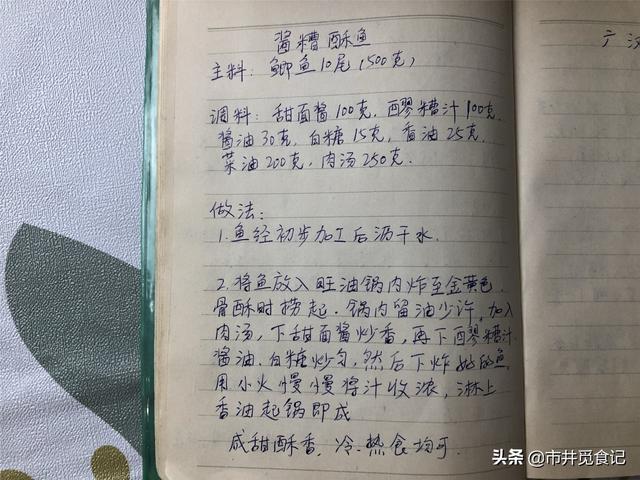 酱糟酥鱼
主料：鲫鱼10尾(500克)
调料：甜面酱100克，醪糟汁100克
酱油30克，白糖15克，香油25克
菜油200克，肉汤250克.
做法：
1.鱼经初步加工后沥干水.
2.将鱼放入旺油锅内炸至金黄色
骨酥时捞起.锅内留油少许，加入
肉汤，下甜面酱炒香，再下醪糟汁
酱油.白糖炒匀，然后下炸好的鱼，
用小火慢慢将汁收浓，淋上
香油起锅即成
咸甜酥香，冷.热食均可.
广汉
头条 @市井觅食记